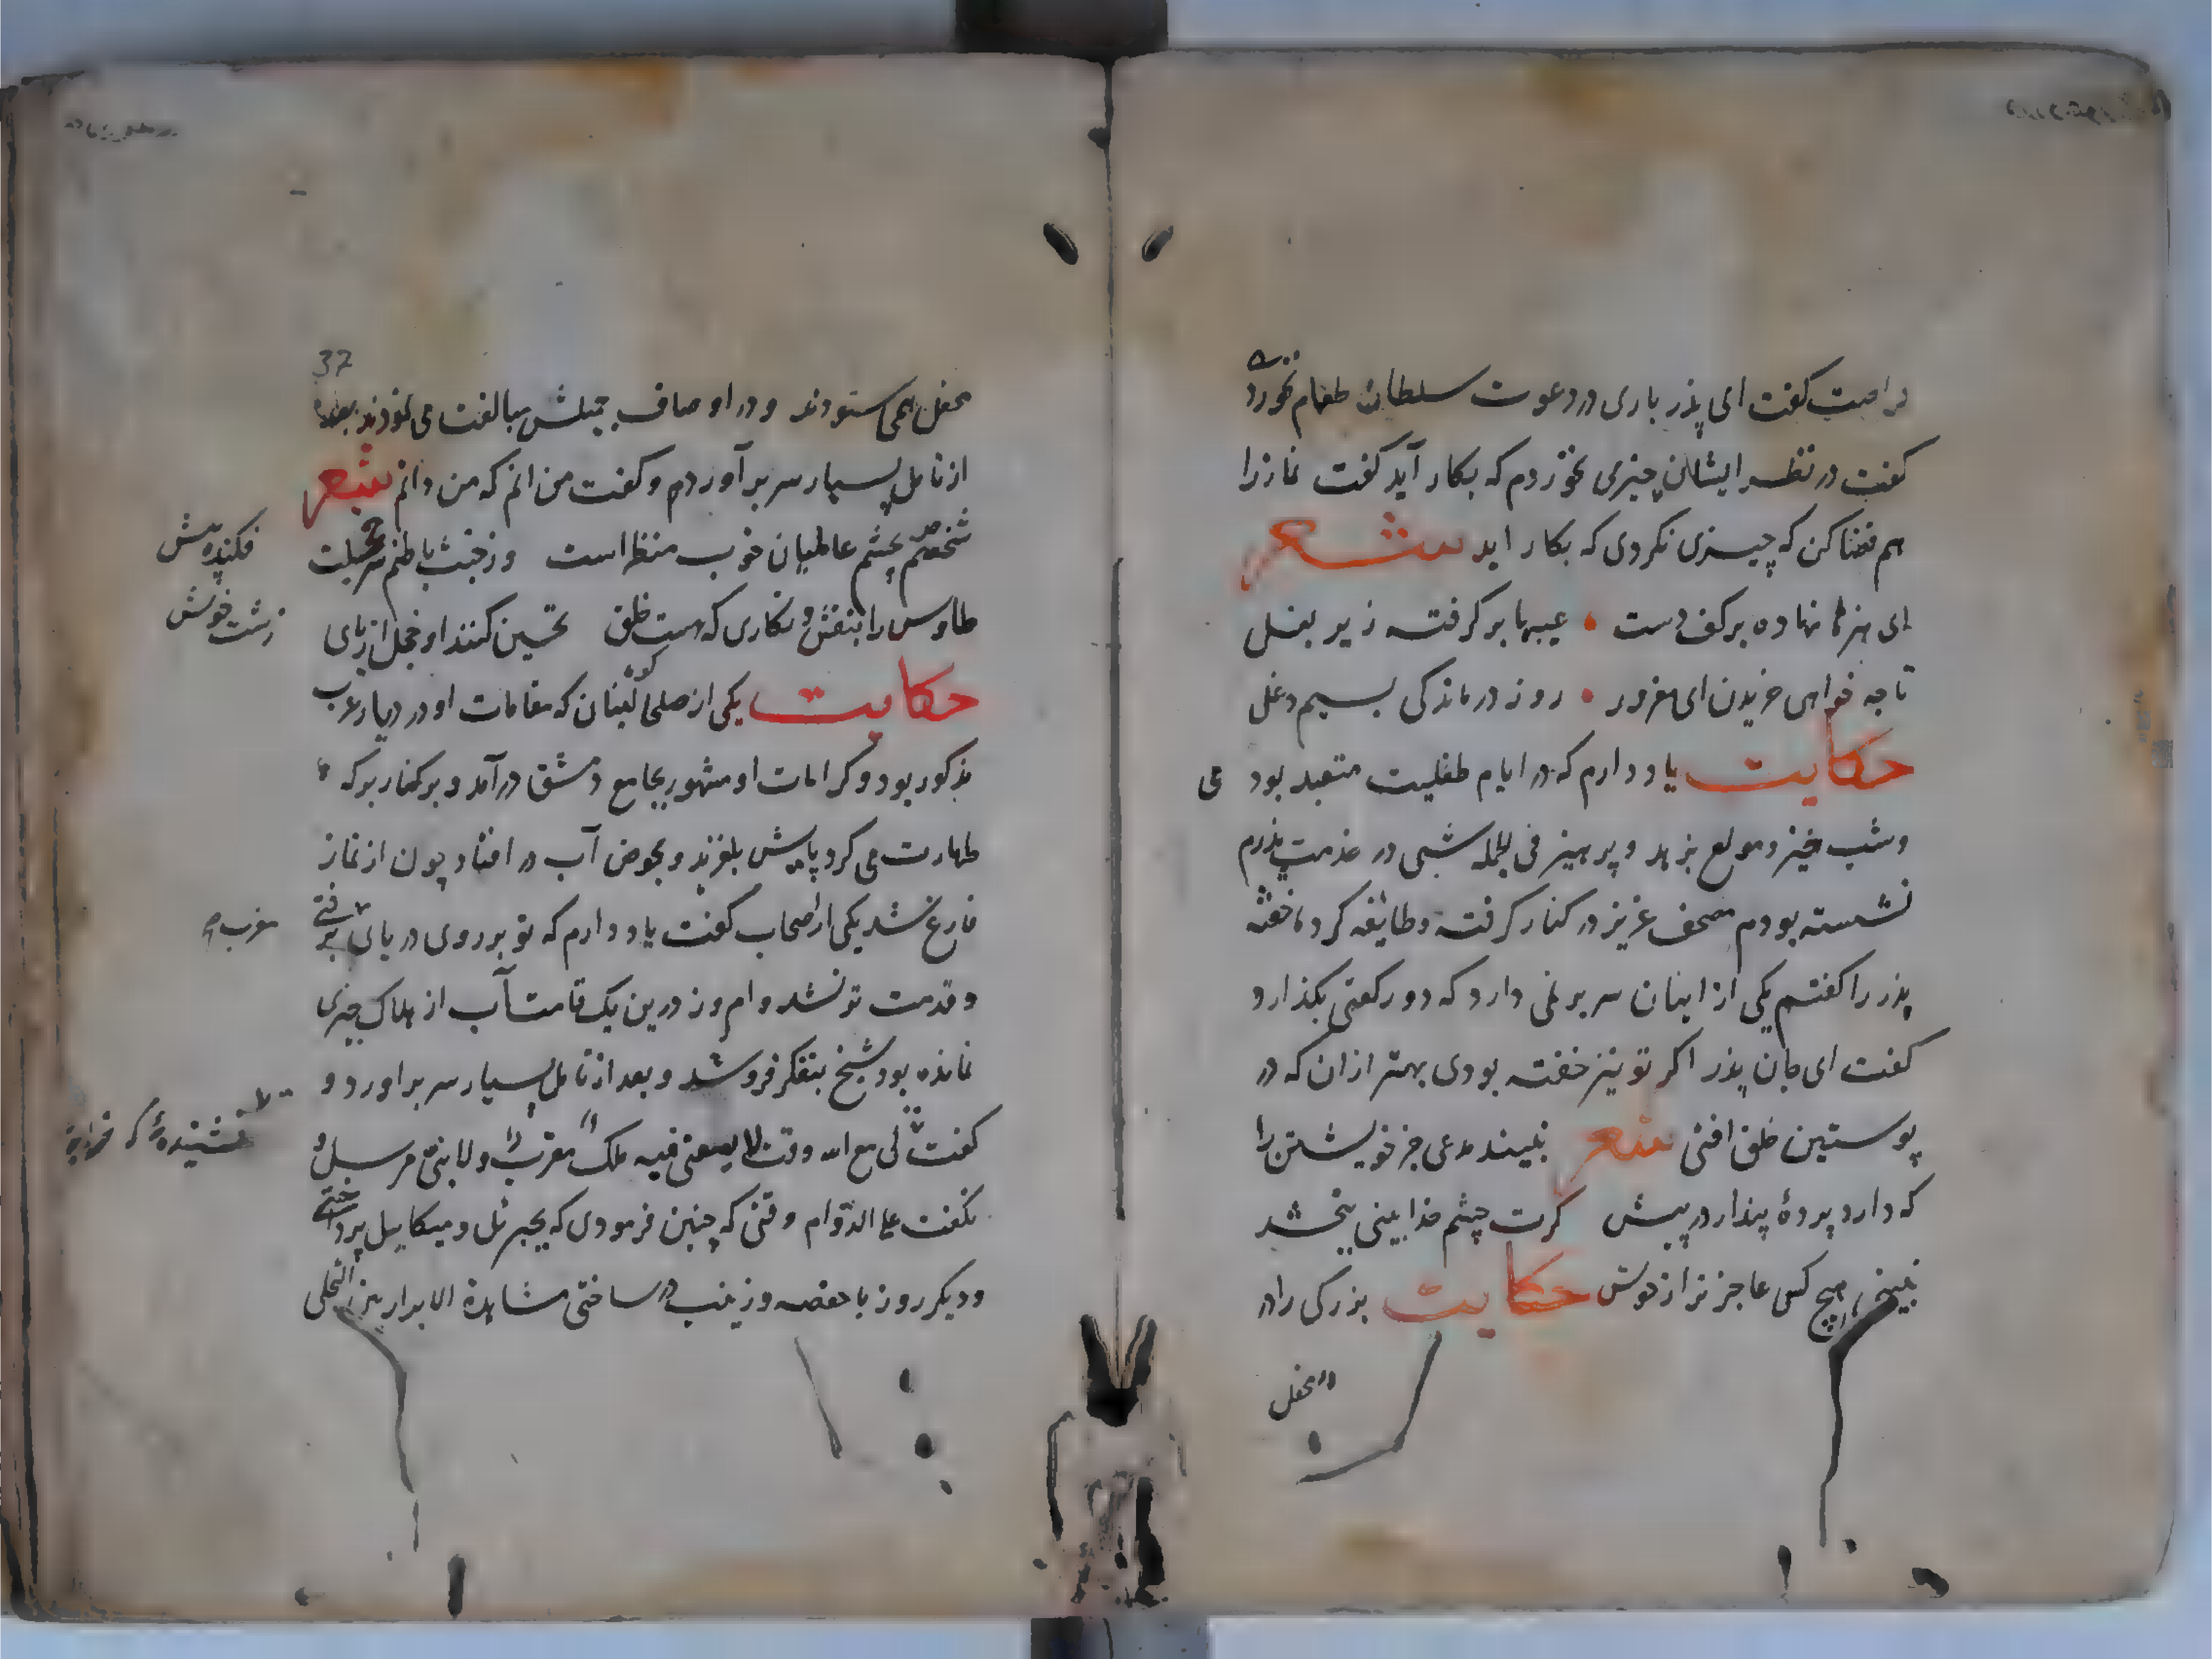 فراست گفت ای پذر باری در دعوت سلطان طعام نخوردی
گفت در نظر ایشان چیزی نخوردم که بکار آید گفت نماز را
هم قضا کن که چیزی نکردی که بکار اید شعر
ای هنرها نهاده بر کف دست عیبها بر گرفته زیر بغل
تا چه خواهی خریدن ای مغرور روز درماندگی بسیم دغل
حکایت یاد دارم که در ایام طفلیت متعبد بود می
و شب خیز و مولع بزهد و پرهیز فی الجمله شبی در خدمت پذرم
نشسته بودم مصحف عزیز در کنار گرفته و طایفه گرد ما خفته
پذر را گفتم یکی از اینان سر بر نمی دارد که دو رکعتی بگذارد
گفت ای جان پذر اگر تو نیز خفته بودی بهتر ازان که در
پوستین خلق افتی شعر نبیند مدعی جز خویشتن را
که دارد پردهٔ پندار در پیش گرت چشم خدا بینی ببخشد
نبینی هیچ کس عاجز تر از خویش حکایت بزرگی را در
محفل
37
محفل همی ستودند و در اوصاف جمیلش مبالغت می نمودند بعد
از تامل بسیار سر بر آوردم و گفت من انم که من دانم شعر
شخصم بچشم عالمیان خوب منظر است وز خبث باطنم سر خجلت
فکنده پیش
طاوس را بنقش و نگاری که هست خلق تحسین کنند او خجل از پای
زشت خویش
حکایت یکی از صلحای لبنان که مقامات او در دیار عرب
مذکور بود و کرامات او مشهور بجامع دمشق در آمد و بر کنار برکه
طهارت می کرد پایش بلغزید و بحوض آب در افتاد چون از نماز
فارغ شد یکی از اصحاب گفت یاد دارم که تو بر روی دریای برفتی
مغرب
و قدمت تر نشد و امروز درین یک قامت آب از هلاک چیزی
نمانده بود شیخ بتفکر فرو شد و بعد از تامل بسیار سر بر اورد و
گفت لی مع الله وقت لا یسعنی فیه ملک مقرب و لا نبی مرسل
نگفت علی الدوام وقتی که چنین فرمودی که بجبرئل و میکاییل پرداختی
و دیگر روز با حفصه و زینب در ساختی مشاهدة الابرار بین التجلی